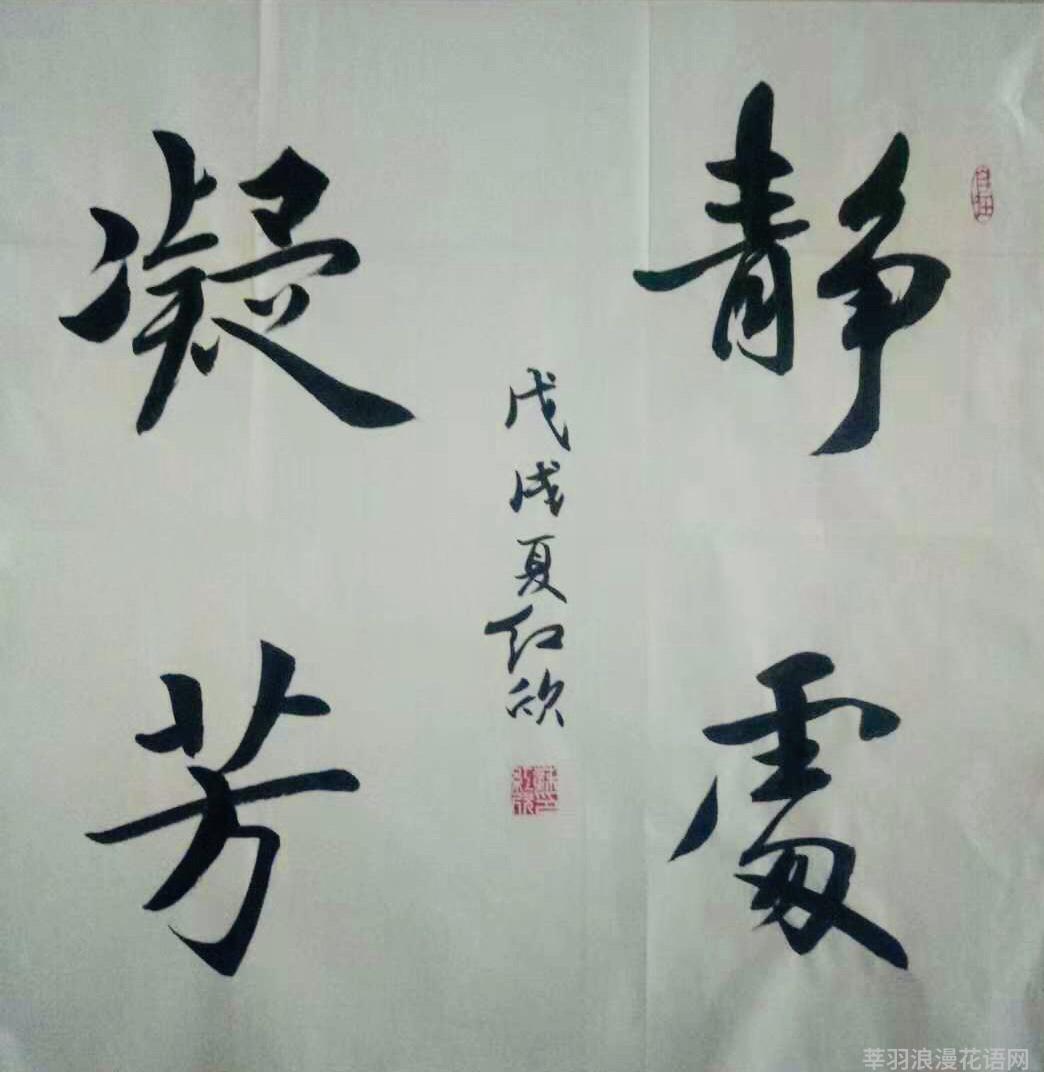 静處
凝芳
戊戌夏红欣
莘羽浪漫花语网